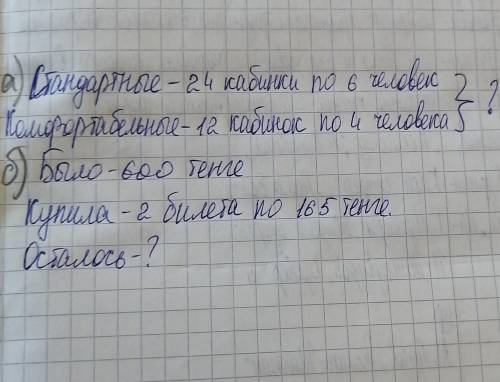 а) Стандартные - 24 кабинки по 6 человек } ?
Комфортабельные - 12 кабинок по 4 человека
б) Было - 600 тенге
Купила - 2 билета по 165 тенге.
Осталось - ?